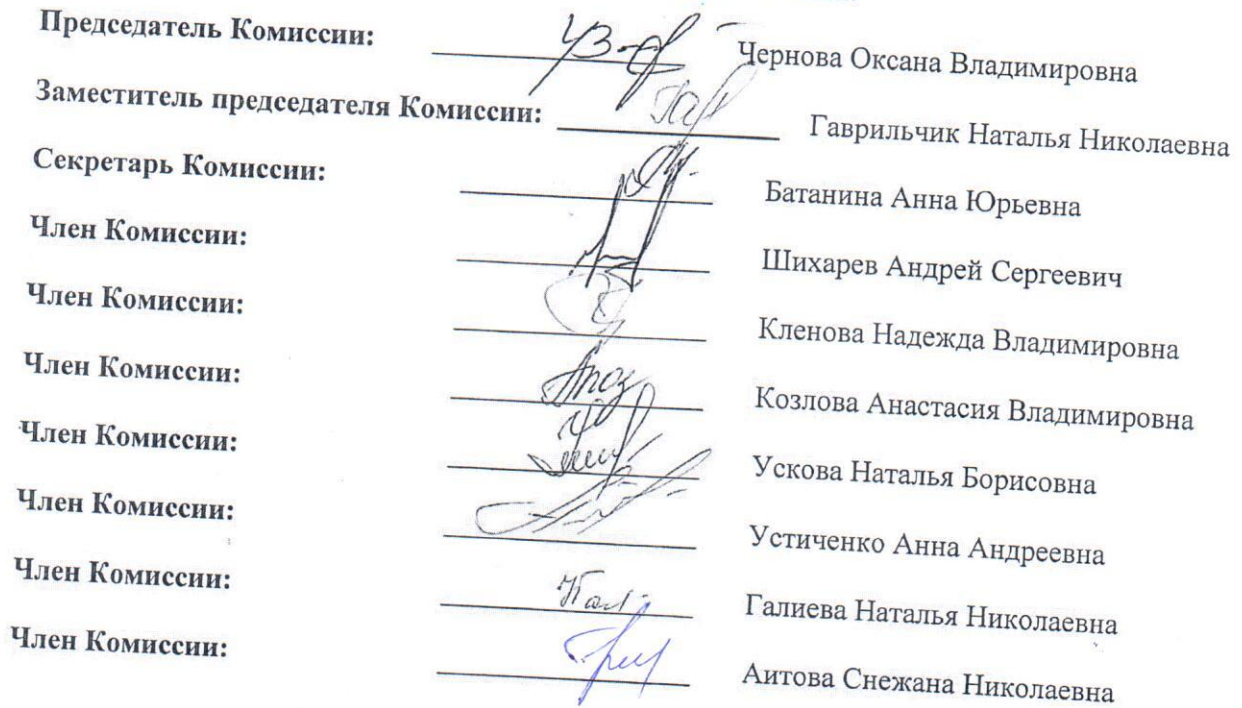 Председатель Комиссии: Чернова Оксана Владимировна
Заместитель председателя Комиссии: Гаврильчик Наталья Николаевна
Секретарь Комиссии: Батанина Анна Юрьевна
Член Комиссии: Шихарев Андрей Сергеевич
Член Комиссии: Кленова Надежда Владимировна
Член Комиссии: Козлова Анастасия Владимировна
Член Комиссии: Ускова Наталья Борисовна
Член Комиссии: Устиченко Анна Андреевна
Член Комиссии: Галиева Наталья Николаевна
Член Комиссии: Аитова Снежана Николаевна